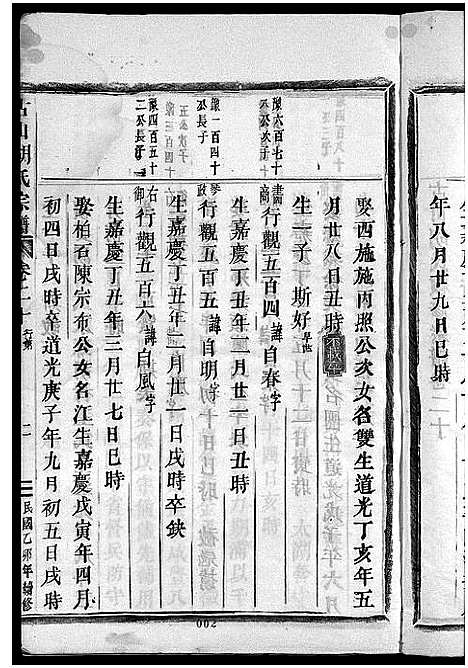 年八月廿九日巳時
娶西施施丙照公次女名雙生道光丁亥年五
月廿八日丑時
生一子 斯好早世
豫六百七十
公次子
行觀五百四 諱自春字書商
生嘉慶丁丑年二月十一日丑時
豫一百四十
六公長子
行觀五百五 諱自明字參政
生嘉慶丁丑年二月廿一日戌時卒缺
豫四百五十
二公長子
行觀五百六 諱自風字右御
生嘉慶丁丑年三月廿七日巳時
娶柏石陳宗布公女名江生嘉慶戊寅年四月
初四日戌時卒道光庚子年九月初五日戌時
古山胡氏宗譜 卷之二十 行第 二 民國乙卯年續修
002